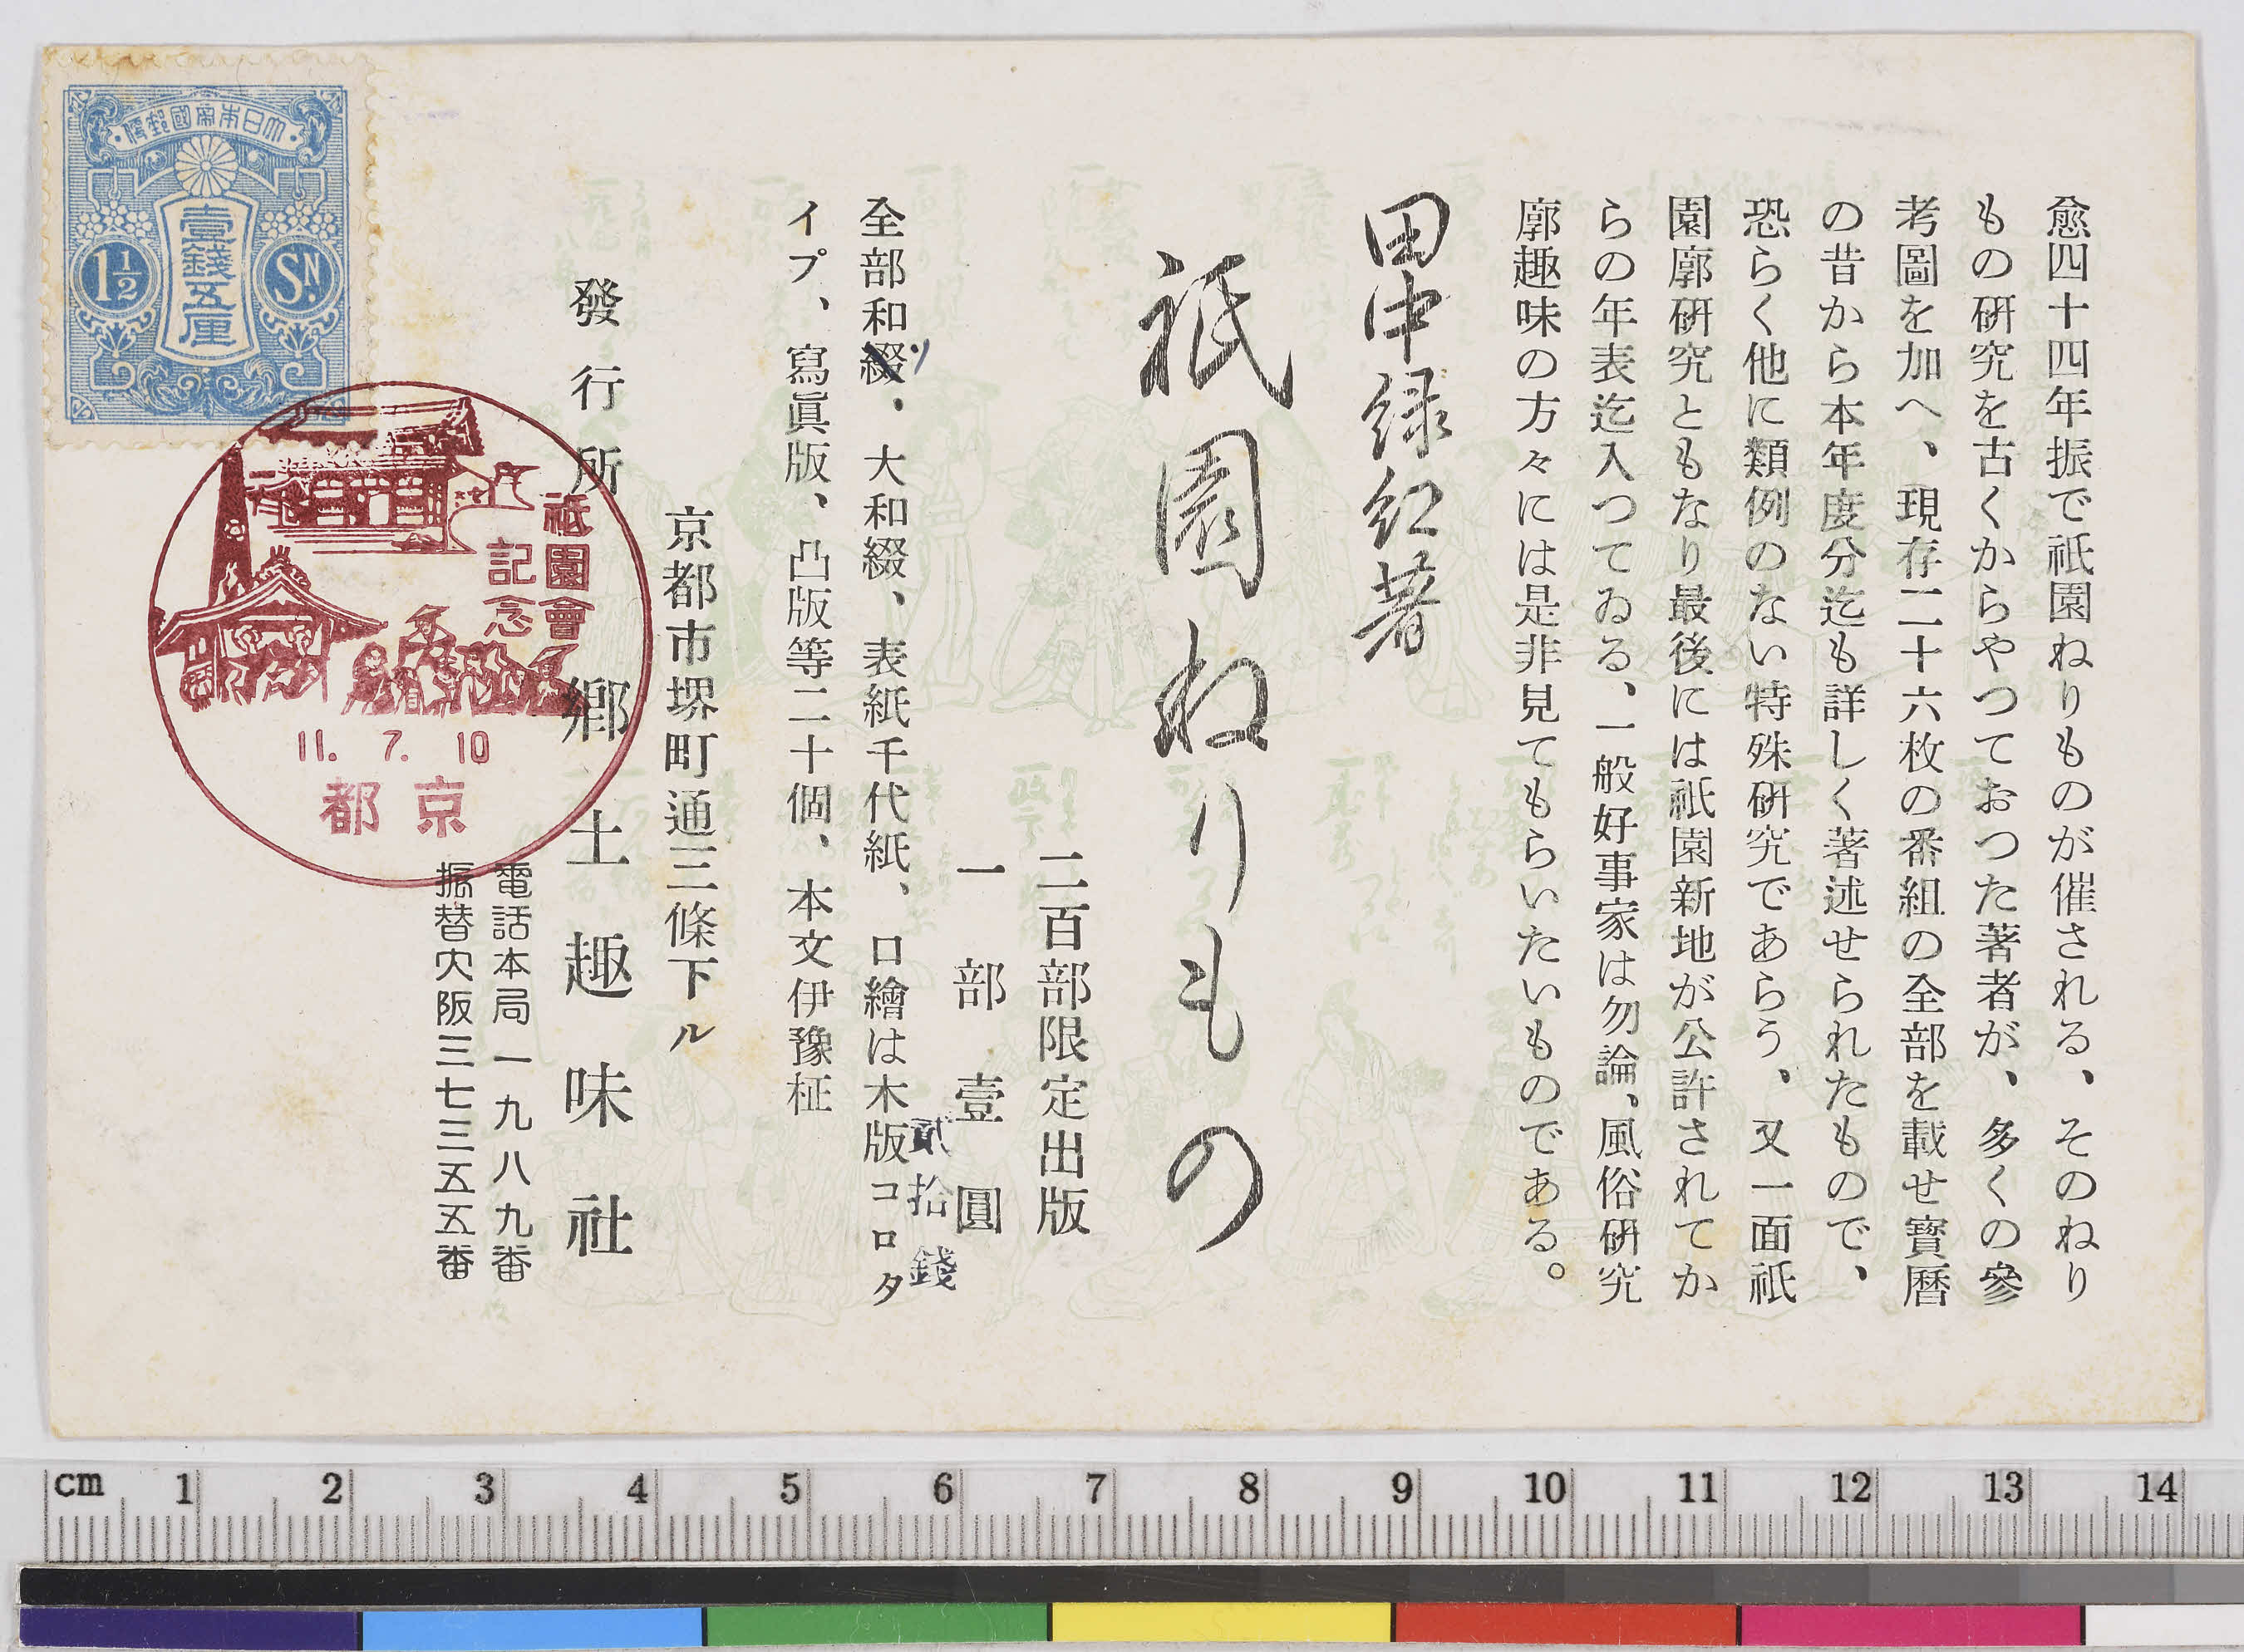 愈四十四年振で祇園ねりものが催される、そのねり
もの研究を古くからやつておつた著者が、多くの參
考圖を加へ、現存二十六枚の番組の全部を載せ寶曆
の昔から本年度分迄も詳しく著述せられたもので、
恐らく他に類例のない特殊研究であらう、又一面祇
園廓研究ともなり最後には祇園新地が公許されてか
らの年表迄入つてゐる、一般好事家は勿論、風俗研究
廓趣味の方々には是非見てもらいたいものである。
田中緑紅著
祇園ねりもの
二百部限定出版
一部壹圓
貳拾錢
全部和綴、大和綴、表紙千代紙、口繪は木版コロタ
イプ、寫眞版、凸版等二十個、本文伊豫柾
京都市堺町通三條下ル
發行所 郷土趣味社
電話本局一九八九番
振替大阪三七三五五番
大日本帝國郵便
壹錢五厘
1½ SN.
祗園會
記念
11. 7. 10
京都
cm 1 2 3 4 5 6 7 8 9 10 11 12 13 14